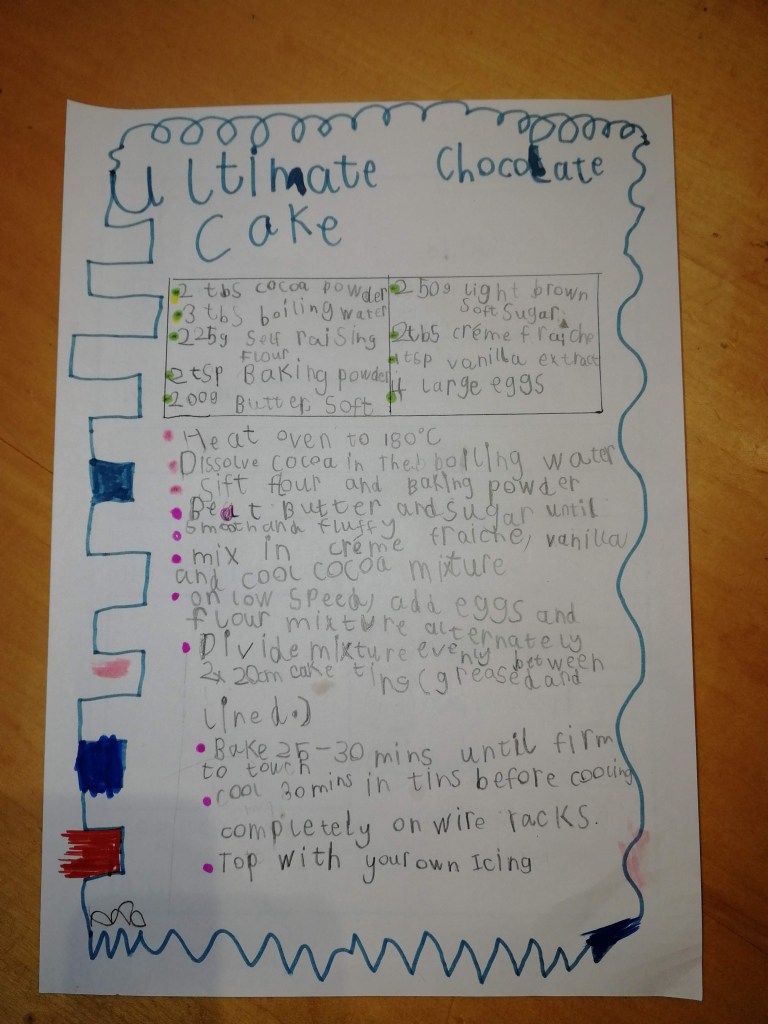 Ultimate Chocolate
Cake
2 tbs cocoa powder
3 tbs boiling water
225g Self raising
flour
2tsp Baking powder
200g Butter Soft
250g Light brown
Soft Sugar.
2tbs créme fraiche
1tsp vanilla extract
4 large eggs
Heat oven to 180°C
Dissolve cocoa in the boiling water
Sift flour and Baking powder
Beat Butter and Sugar until
Smooth and fluffy
mix in créme fraiche, vanilla
and cool cocoa mixture
on low Speed, add eggs and
flour mixture alternately
Divide mixture evenly between
2x 20cm cake tins (greased and
lined.)
Bake 25-30 mins until firm
to touch
Cool 30mins in tins before cooling
completely on wire racks.
Top with your own Icing